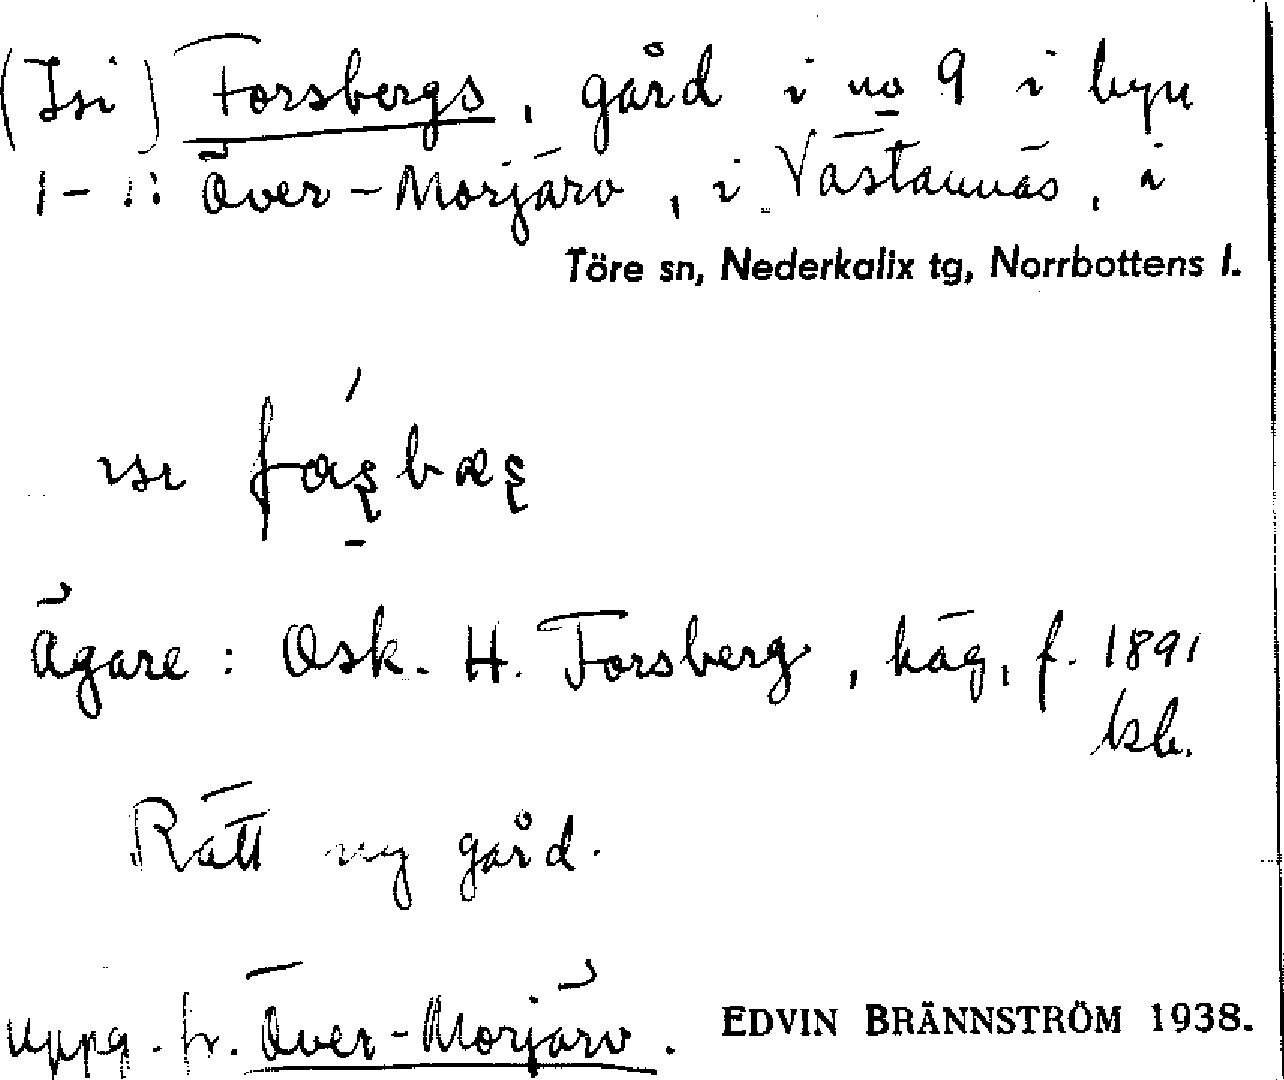 (Isi) Forsbergs, gård i no 9 i byn
1-1: Över-Morjärv, i Västannäs, i
Töre sn, Nederkalix tg, Norrbottens l.
ısı
Ägare: Osk. H. Forsberg, häg, f. 1891
Rätt ny gård.
uppg. fr. Över-Morjärv. EDVIN BRÄNNSTRÖM 1938.